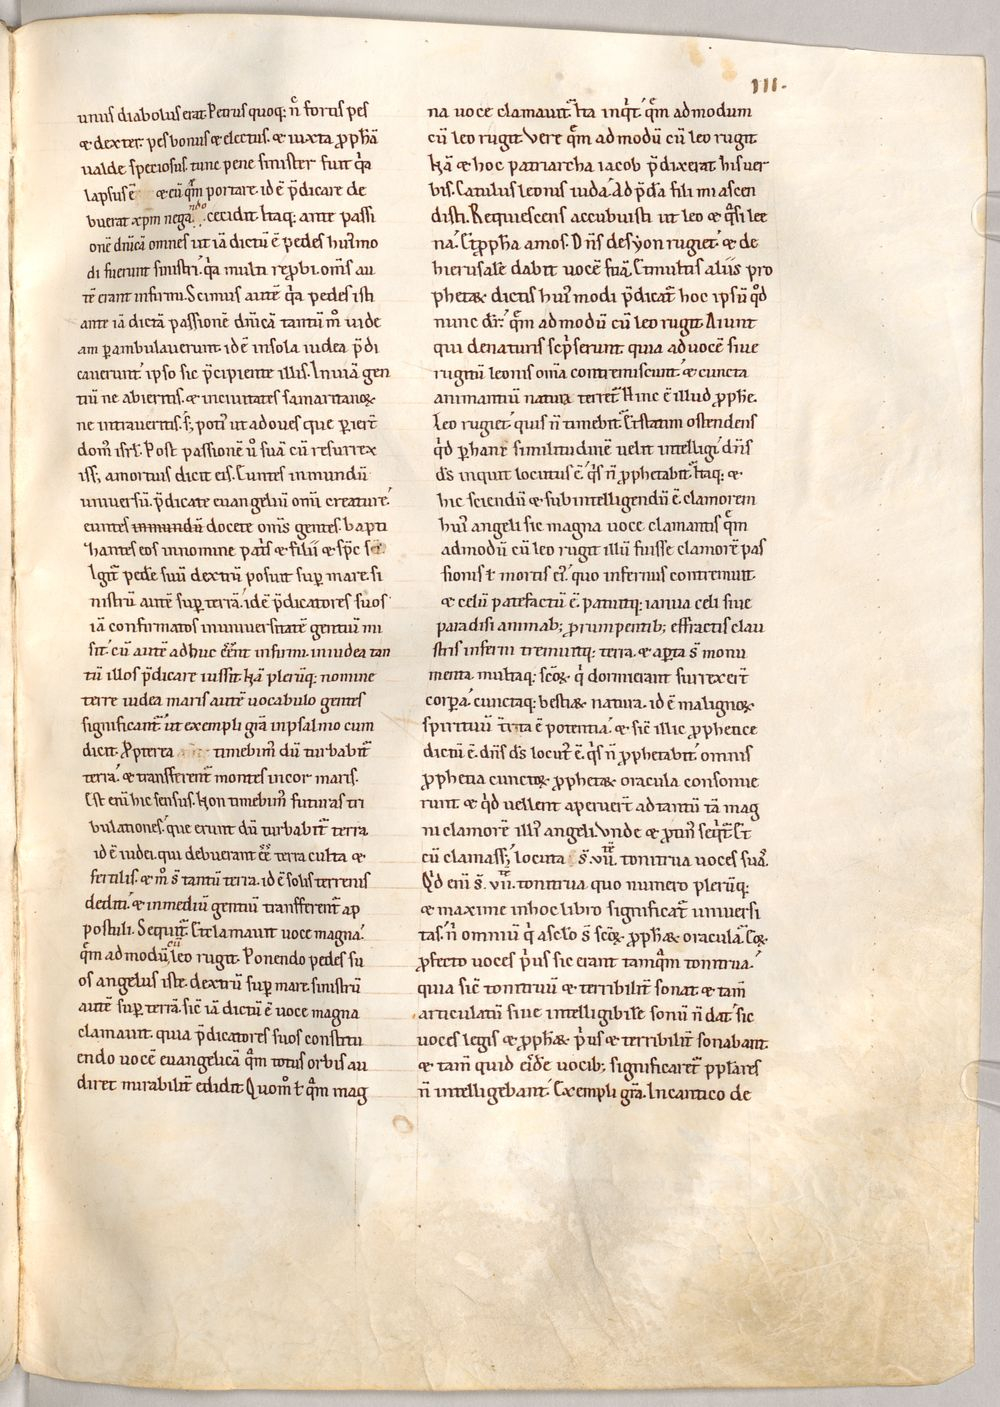 III.
unus diabolus erat. Petrus quoq; n̄ fortis pes
& dexter. pes bonus & electus. & iuxta ꝓph̄ā
ualde speciosus. tunc pene sinister fuit q̇a
lapsus ē & cū q̄m portare. id ē p̄dicare de
buerat xp̄m negando cecidit. Itaq; ante passi
onē dn̄icā omnes ut iā dictū ē pedes hui᷒mo
di fuerunt sinistri. q̇a multi reꝓbi. om̄s au
tē erant infirmi. Scimus autē q̇a pedes isti
ante iā dictā passionē dn̄icā tantūm̊ iude
am ꝑambulauerunt. id ē in sola iudea p̄di
cauerunt. ipso sic p̄cipiente illis. In uiā gen
tiū ne abieritis. & in ciuitates samaritanoꝝ
ne intraueritis. s; poti᷒ ut ad oues que ꝑier̄
dom᷒ isrl̄. Post passionē ů suā cū resurrex
iss; a mortuis dicit eis. Euntes in mundū
uniuersū. p̄dicate euangeliū omi creature.
euntes in mundū docete om̄s gentes. bapti
zantes eos in nomine pat̄s & filii & sp̄c sc̄i.
Igit̄ pede suū dextrū posuit suꝑ mare. si
nistrū autē suꝑ terrā. id ē p̄dicatores suos
iā confirmatos in uniuersitatē gentiū mi
sit. cū autē adhuc eēnt infirmi. in iudea tan
tū illos p̄dicare iussit. Nā pleriq; nomine
terre iudea maris autē uocabulo gentes
significant̄. ut exempli grā in psalmo cum
dicit. Propterea timebim᷒ dū turbabit̄
terra. & transferent̄ montes in cor maris.
Est enī hic sensus. Non timebim᷒ futuras tri
bulationes. que erunt dū turbabit̄ terra
id ē iudei. qui debuerant eē terra culta &
fertilis. & m̊ s̄ tantū terra. id ē solis terrenis
dediti. & in mediū gentiū transferent̄ ap
postuli. Sequit̄. Et clamauit uoce magna.
q̄m admodū cū leo rugit. Ponendo pedes su
os angelus iste. dextrū suꝑ mare. sinistrū
autē suꝑ terrā. sic̄ iā dictū ē uoce magna
clamauit. quia p̄dicatores suos constitu
endo uocē euangelicā q̄m totus orbis au
diret mirabilit̄ edidit. Quom̊ ł q̄m mag
na uoce clamauit. Ita inq̇t. q̄m admodum
cū leo rugit. Vere q̄m admodū cū leo rugit
Nā & hoc patriarcha iacob p̄dixerat his uer
bis. Catulus leonis iuda. Ad p̄dā fili mi ascen
disti. Requiescens accubuisti ut leo & q̇si lee
na. Et ꝓph̄a amos. Dn̄s de syon rugiet. & de
hierusalē dabit uocē suā. Et multis aliis pro
phetaꝝ dictis hui᷒modi p̄dicat̄ hoc ipsū q̇d
nunc dr̄. q̄m admodū cū leo rugit. Aiunt
qui de naturis scp̄serunt. quia ad uocē siue
rugitū leonis om̄ia contremiscunt. & cuncta
animantiū natura terret̄. Hinc ē illud ꝓphe.
Leo rugiet. quis n̄ timebit. Et statim ostendens
q̇d ꝑ hanc similitudinē uelit intelligi. dn̄s
ds̄ inquit locutus ē. q̇s n̄ ꝓphetabit. Itaq; &
hic sciendū & subintelligendū ē. clamorem
hui᷒ angeli sic magna uoce clamantis q̄m
admodū cū leo rugit illū fuisse clamorē pas
sionis ł mortis ei᷒. quo infernus contremuit.
& celū patefactū ē. patuitq; ianua celi siue
paradisi animab; ꝓrumpentib; effractis clau
stris inferni tremuitq; terra. & aꝑta s̄ monu
menta. multaq; scōꝝ q̇ dormierant surrexer̄
corpa. cunctaq; bestiaꝝ natura. id ē malignoꝝ
spirituū territa ē potentia. & sic̄ illic ꝓphetice
dictū ē. dn̄s ds̄ locut᷒ ē. q̇s n̄ ꝓphetabit. omnis
ꝓphetia cunctoꝝ ꝓphetaꝝ oracula consonue
runt & q̇d uellent aperuer̄t ad tantū tā mag
ni clamorē illi᷒ angeli. Vnde & ꝓtin᷒ seq̇t̄. Et
cū clamass; locuta s̄ .vii. tonitrua uoces suas.
Q̇d enī s̄ .vii. tonitrua quo numero pleriq;
& maxime in hoc libro significat̄ uniuersi
tas. n̄ omniū q̇ a sclo s̄ scōꝝ ꝓphaꝝ oracula. Eoꝝ
ꝓfecto uoces ṗus sic erant tamq̇m tonitrua.
quia sic̄ tonitruū & terribilit̄ sonat & tam̄
articulatū siue intelligibile sonū n̄ dat. sic
uoces legis & ꝓphaꝝ ṗus & terribilit̄ sonabant.
& tam̄ quid eisdē uocib; significaret̄ pplares
n̄ intelligebant. Exempli grā. In cantico de